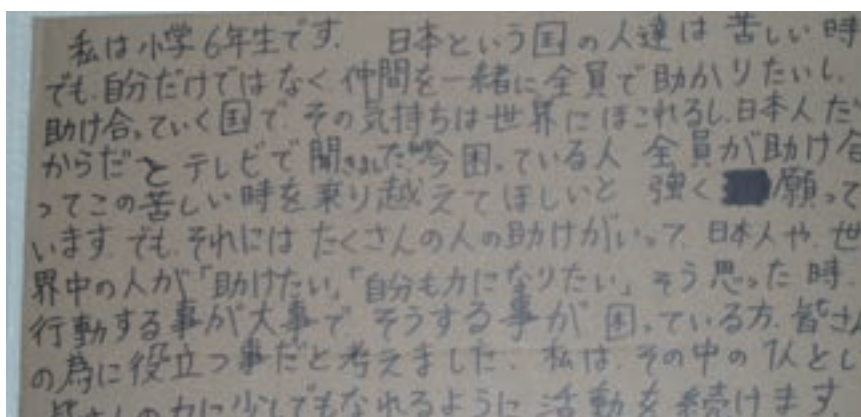 私は小学6年生です. 日本という国の人達は苦しい時
でも.自分だけではなく仲間を一緒に全員で助かりたいし.
助け合っていく国で.その気持ちは世界にほこれるし.日本人だ
からだとテレビで聞きました.今困っている人 全員が助け合
ってこの苦しい時を乗り越えてほしいと 強く 願って
います.でも.それには たくさんの人の助けがいって.日本人や.世
界中の人が「助けたい」「自分も力になりたい」そう思った時.
行動する事が大事で.そうする事が 困っている方.皆さん
の為に役立つ事だと考えました.私は.その中の1人とし
皆さんの力に少しでもなれるように 活動を続けます.